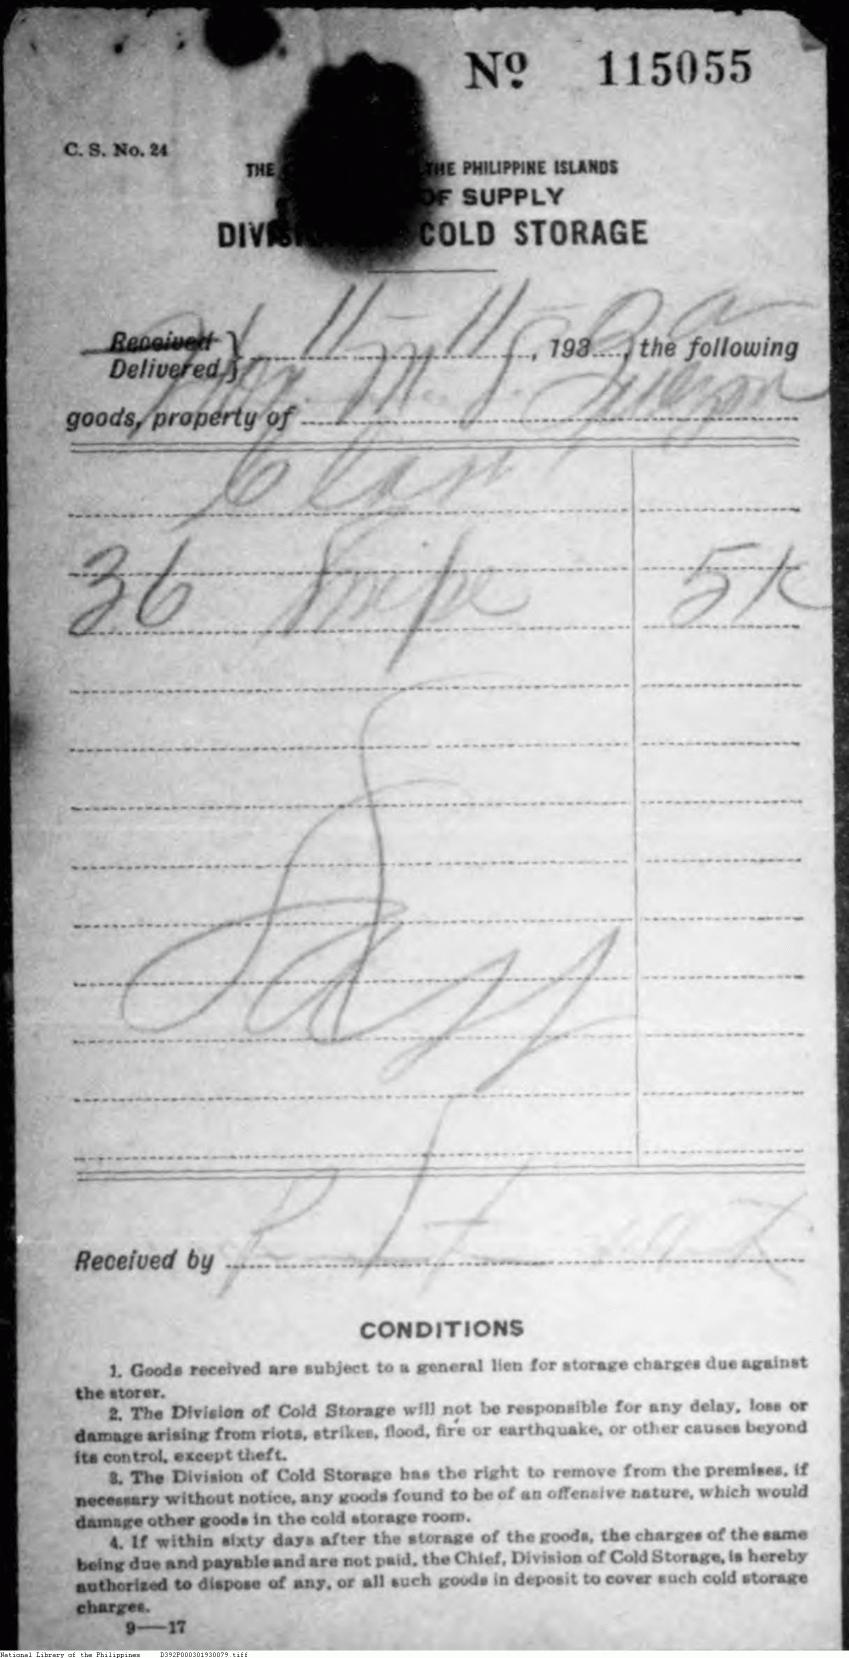 Nº 115055
C. S. No. 24
THE THE PHILIPPINE ISLANDS
OF SUPPLY
DIVISION COLD STORAGE
Received
Delivered } 11-11-, 193, the following
goods, property of Hon. M. L. Quezon
36 Snipe 5K
Received by
CONDITIONS
1. Goods received are subject to a general lien for storage charges due against
the storer.
2. The Division of Cold Storage will not be responsible for any delay, loss or
damage arising from riots, strikes, flood, fire or earthquake, or other causes beyond
its control, except theft.
3. The Division of Cold Storage has the right to remove from the premises, if
necessary without notice, any goods found to be of an offensive nature, which would
damage other goods in the cold storage room.
4. If within sixty days after the storage of the goods, the charges of the same
being due and payable and are not paid, the Chief, Division of Cold Storage, is hereby
authorized to dispose of any, or all such goods in deposit to cover such cold storage
charges.
9—17
National Library of the Philippines D392P000301930079.tiff